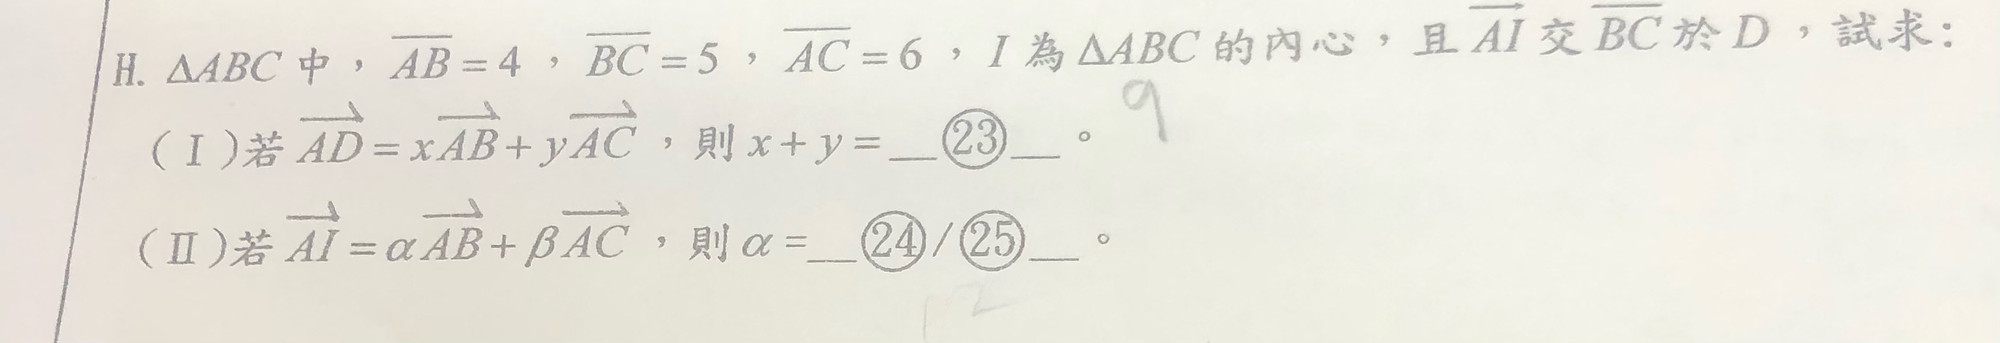 H. ΔABC 中，AB = 4，BC = 5，AC = 6，I 為 ΔABC 的內心，且 AI 交 BC 於 D，試求：
9
(Ⅰ)若 AD = xAB + yAC，則 x + y = __㉓__。
(Ⅱ)若 AI = αAB + βAC，則 α = __㉔/㉕__。
12